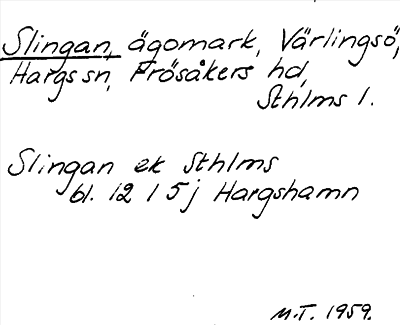 Slingan, ägomark, Värlingsö,
Hargs sn, Frösåkers hd,
Sthlms l.
Slingan ek Sthlms
bl. 12 I 5j Hargshamn
M.T. 1959.